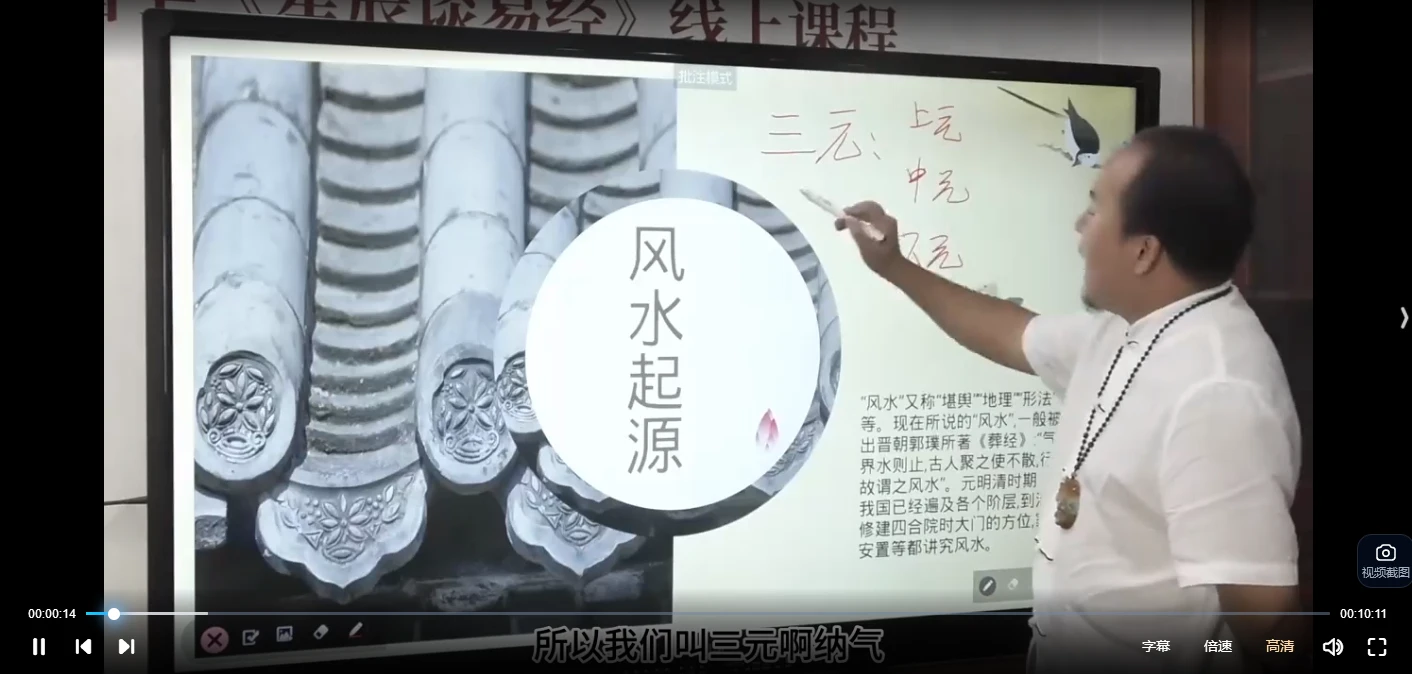 《星辰谈易经》线上课程
批注模式
三元：
上元
中元
下元
风水起源
“风水”又称“堪舆”“地理”“形法
等。现在所说的“风水”,一般被
出晋朝郭璞所著《葬经》:“气
界水则止,古人聚之使不散,行
故谓之风水”。元明清时期
我国已经遍及各个阶层,到
修建四合院时大门的方位,
安置等都讲究风水。
视频截图
00:00:14
00:10:11
所以我们叫三元啊纳气
字幕
倍速
高清